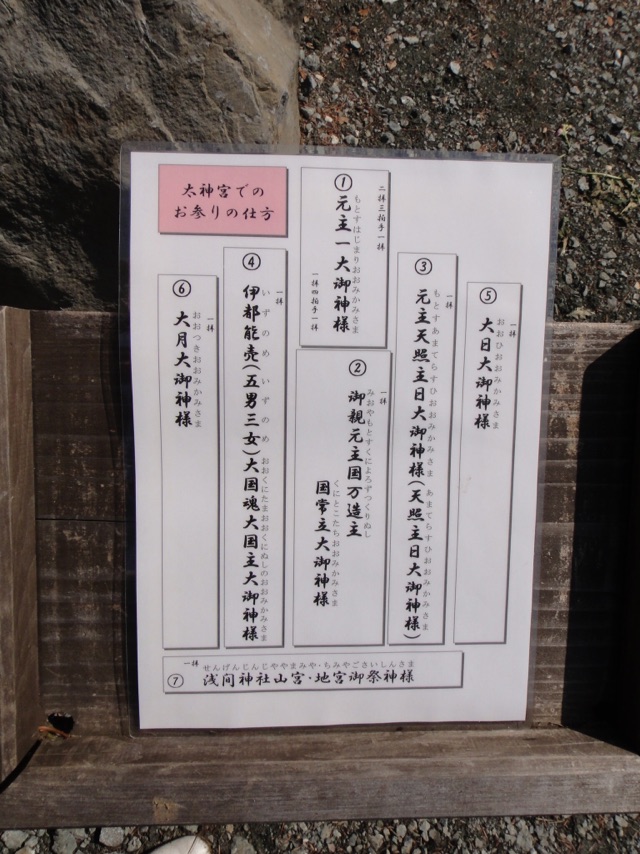 太神宮での
お参りの仕方
二拝三拍手一拝
①
もとすはじまりおおみかみさま
元主一大御神様
一拝四拍手一拝
一拝
②
みおやもとすくによろずつくりぬし
御親元主国万造主
くにとこたちおおみかみさま
国常立大御神様
一拝
③
もとすあまてらすひおおみかみさま あまてらすひおおみかみさま
元主天照主日大御神様(天照主日大御神様)
一拝
④
いずのめ いずのめ おおくにたまおおくにぬしのおおみかみさま
伊都能売(五男三女)大国魂大国主大御神様
一拝
⑤
おおひおおみかみさま
大日大御神様
一拝
⑥
おおつきおおみかみさま
大月大御神様
一拝
せんげんじんじゃやまみや・ちみやごさいしんさま
⑦ 浅间神社山宮・地宮御祭神様